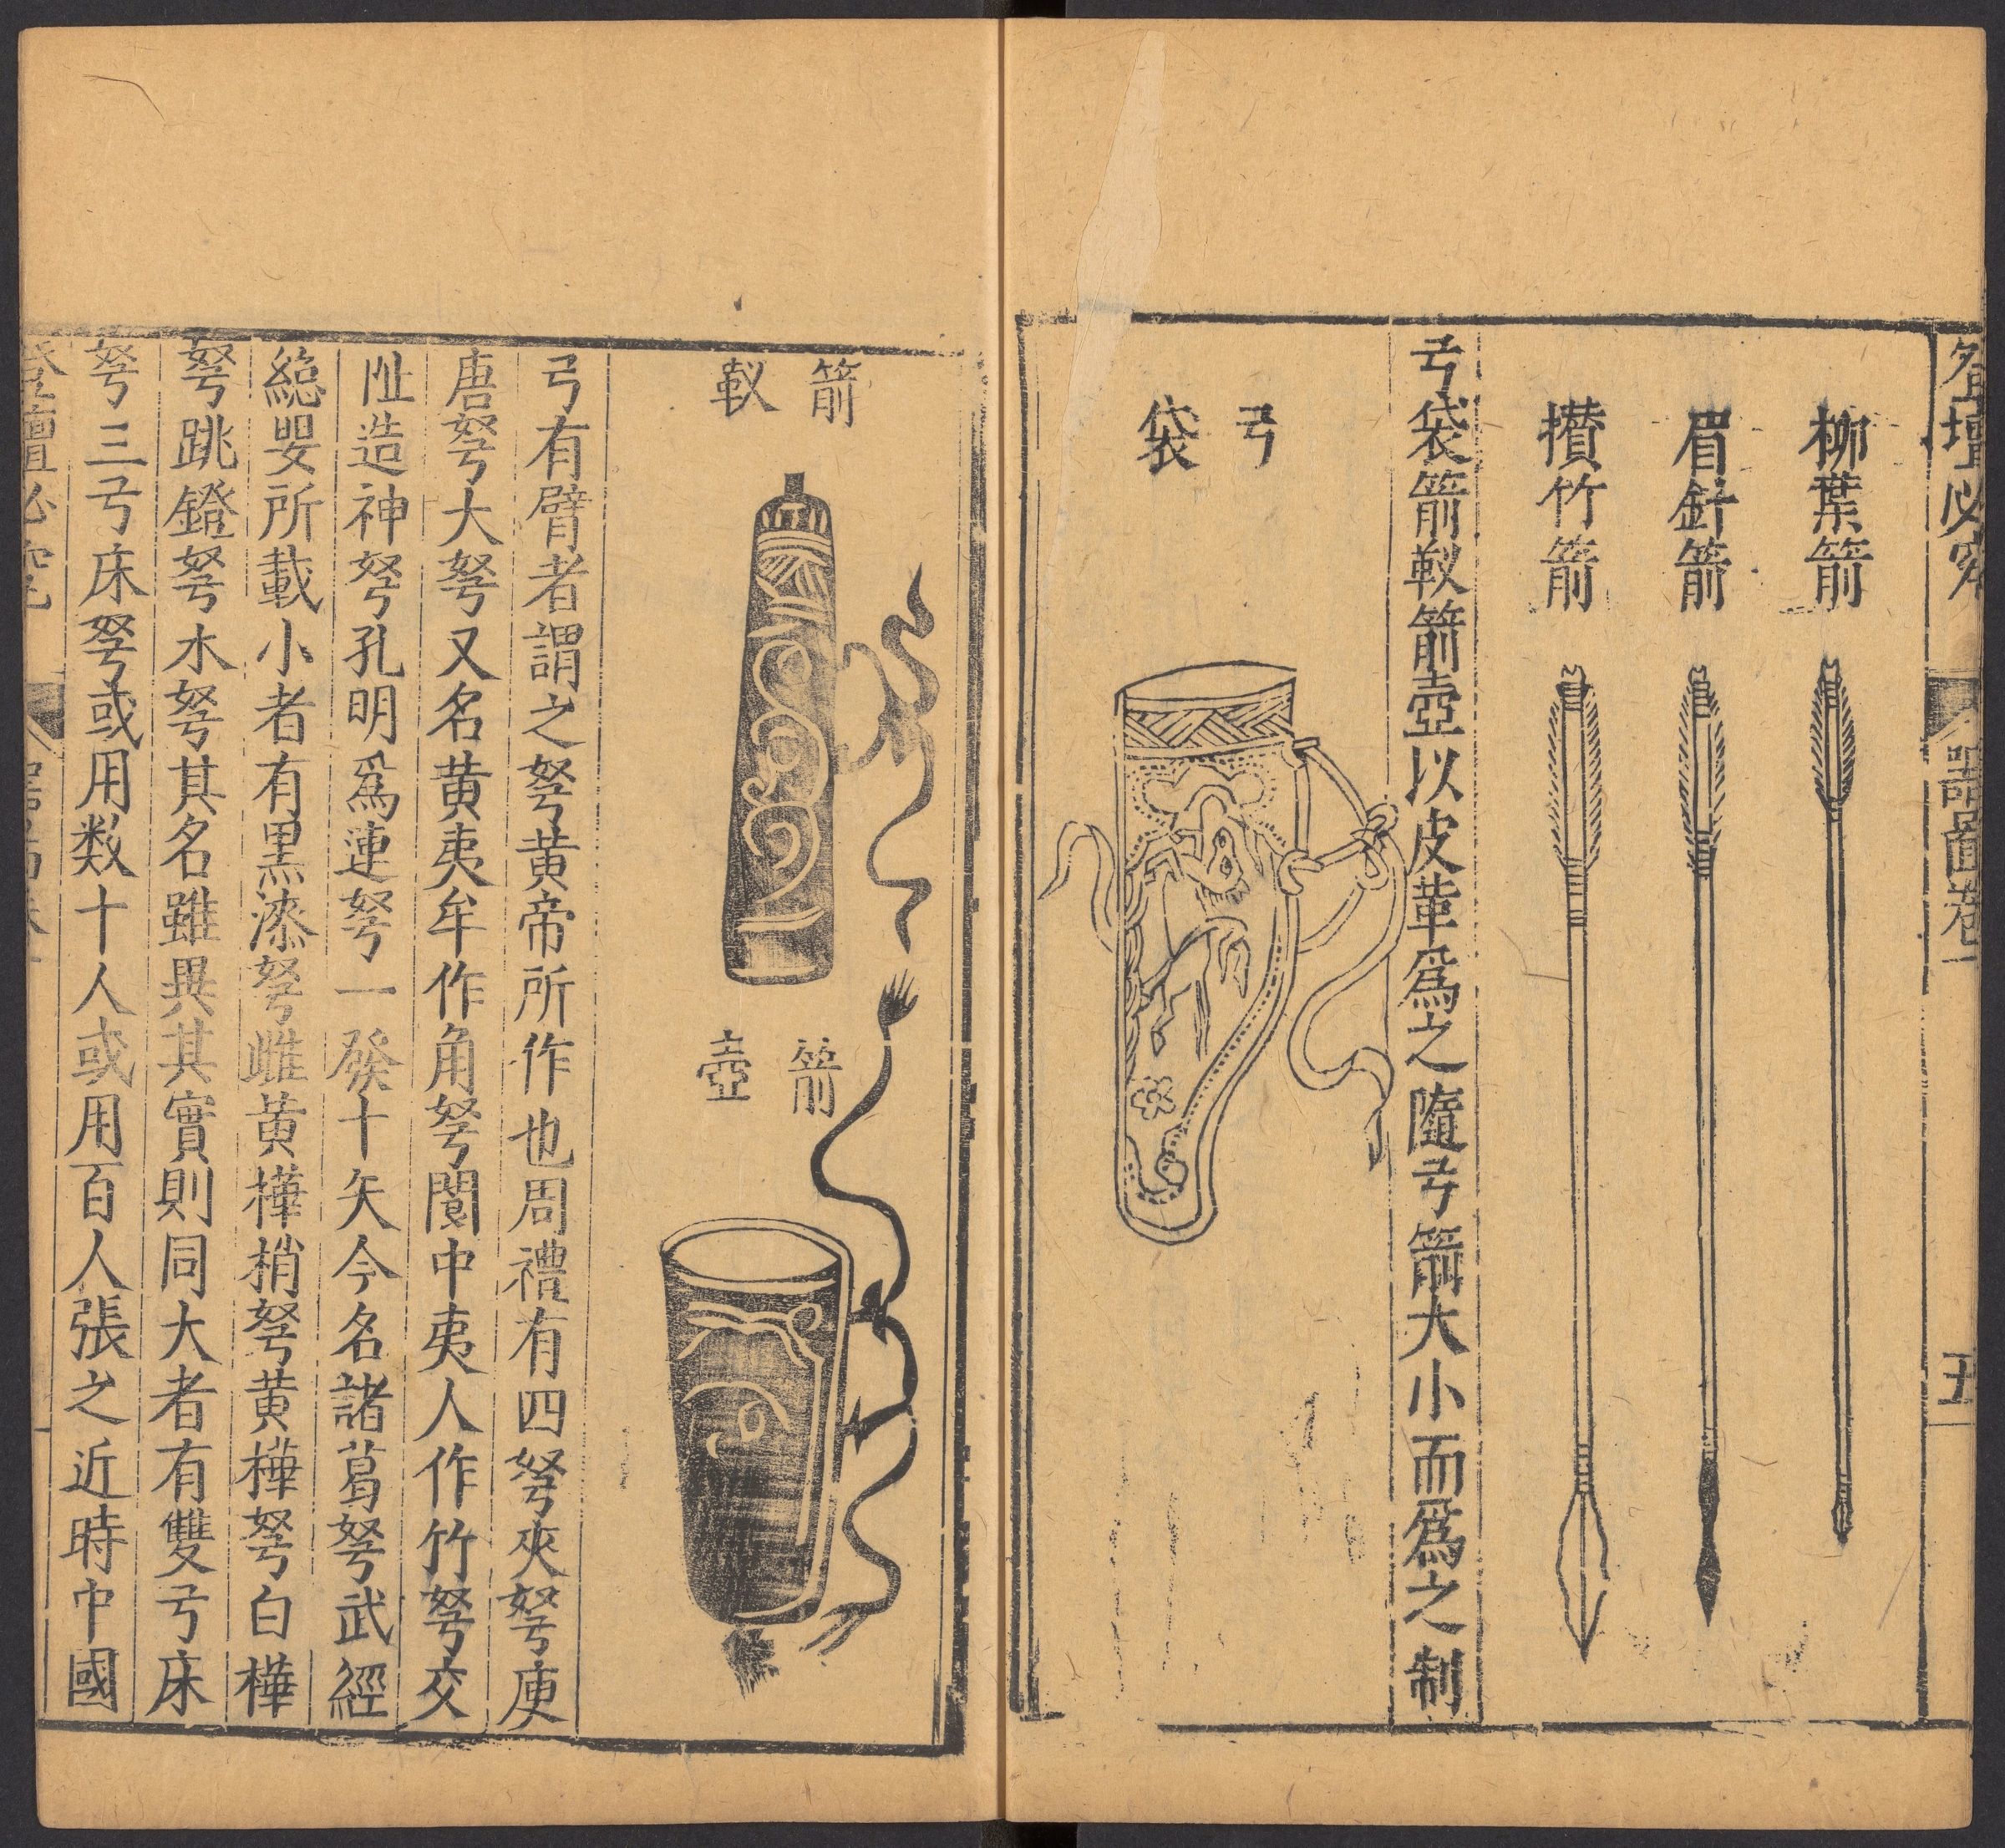 登壇必究
器圖卷一
五
柳葉箭
眉針箭
攅竹箭
弓袋箭靫箭壺以皮革爲之隨弓箭大小而爲之制
弓袋
箭靫
箭壺
弓有臂者謂之弩黄帝所作也周禮有四弩夾弩庾
唐弩大弩又名黄夷牟作角弩閬中夷人作竹弩交
阯造神弩孔明爲連弩一發十矢今名諸葛弩武經
緫要所載小者有黒漆弩雌黄樺梢弩黄樺弩白樺
弩跳鐙弩木弩其名雖異其實則同大者有雙弓床
弩三弓床弩或用数十人或用百人張之近時中國
登壇必究